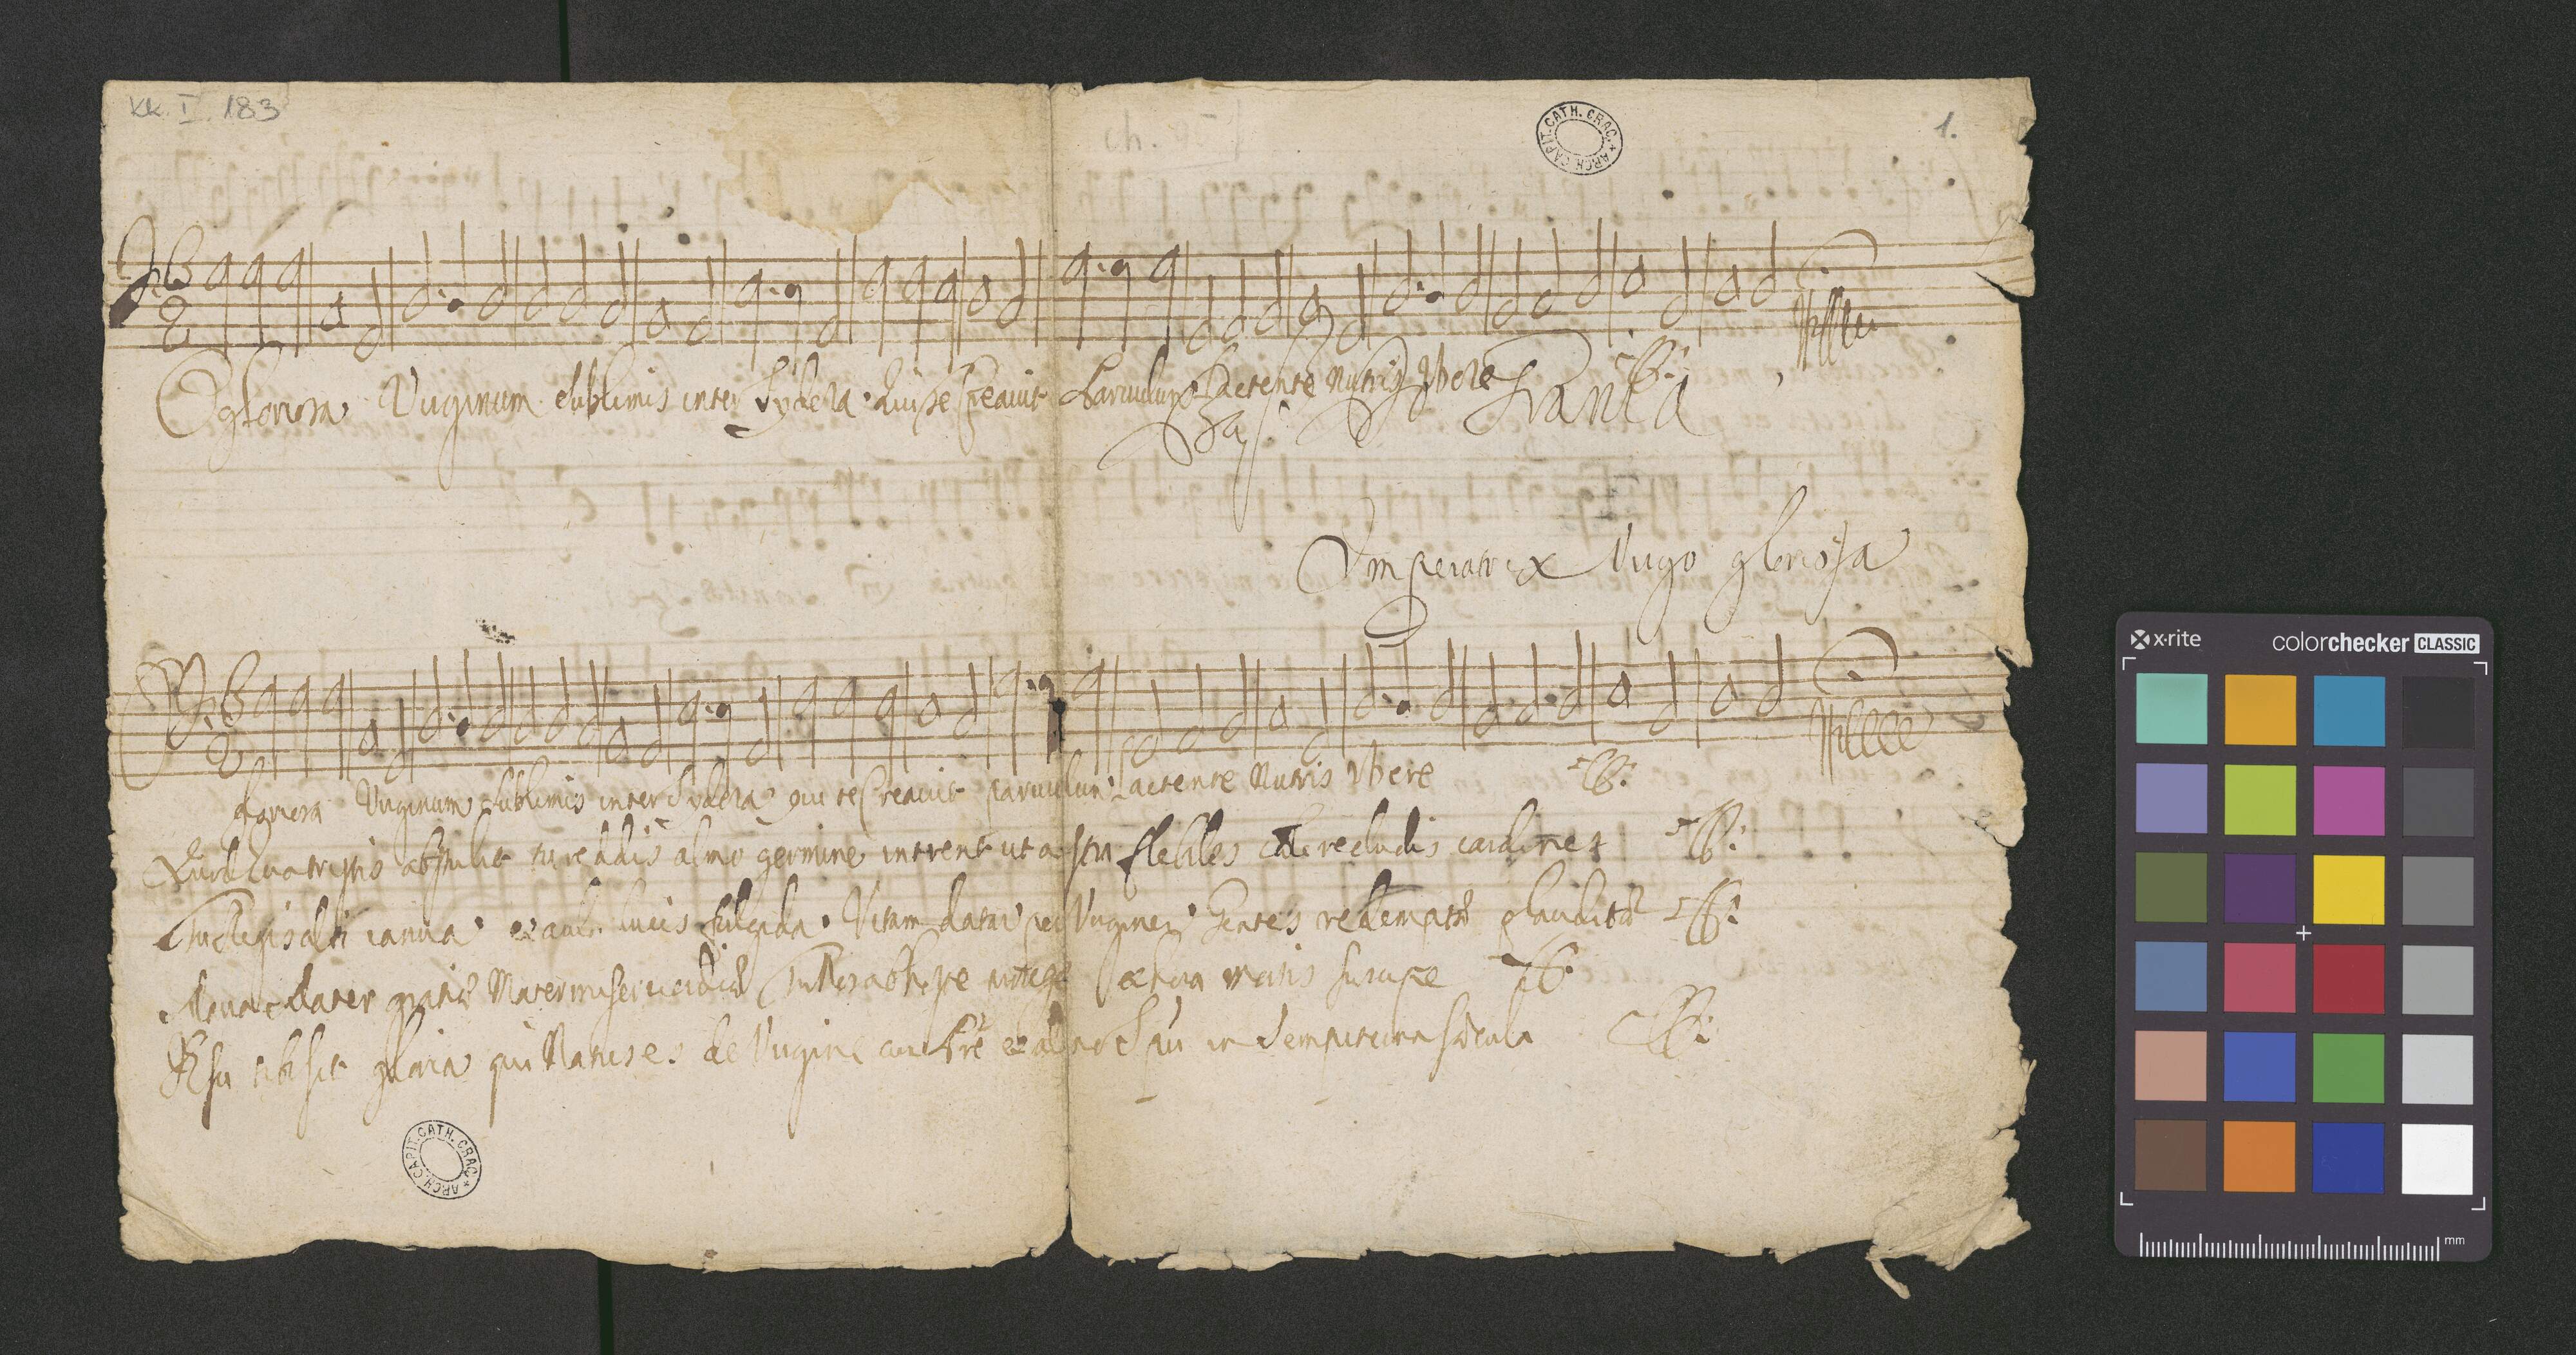 KK. I. 183
1.
ARCH. CAPIT. CATH. CRAC.
O gloriosa Virginum sublimis inter Sydera qui te Creavit Parvulum Lactente Nutris Vbere
Bas:
Imperatrix Virgo gloriosa
gloriosa Virginum sublimis inter Sydera qui te Creavit parvulum Lactente Nutris Vbere
Quod Eva tristis abstulit tu reddis almo germine intrent ut astra flebiles cæli recludis cardines
Tu Regis alti ianua et aula lucis fulgida Vitam datam per Virginem Gentes redemptæ plaudite
Maria Mater gratiæ Mater misericordiæ Tu Nos ab hoste protege et hora mortis suscipe
JEsu tibi sit gloria qui Natus es de Virgine cum Pre et almo Spu in Sempiterna sæcula
ARCH. CAPIT. CATH. CRAC.
x-rite
colorchecker CLASSIC
mm